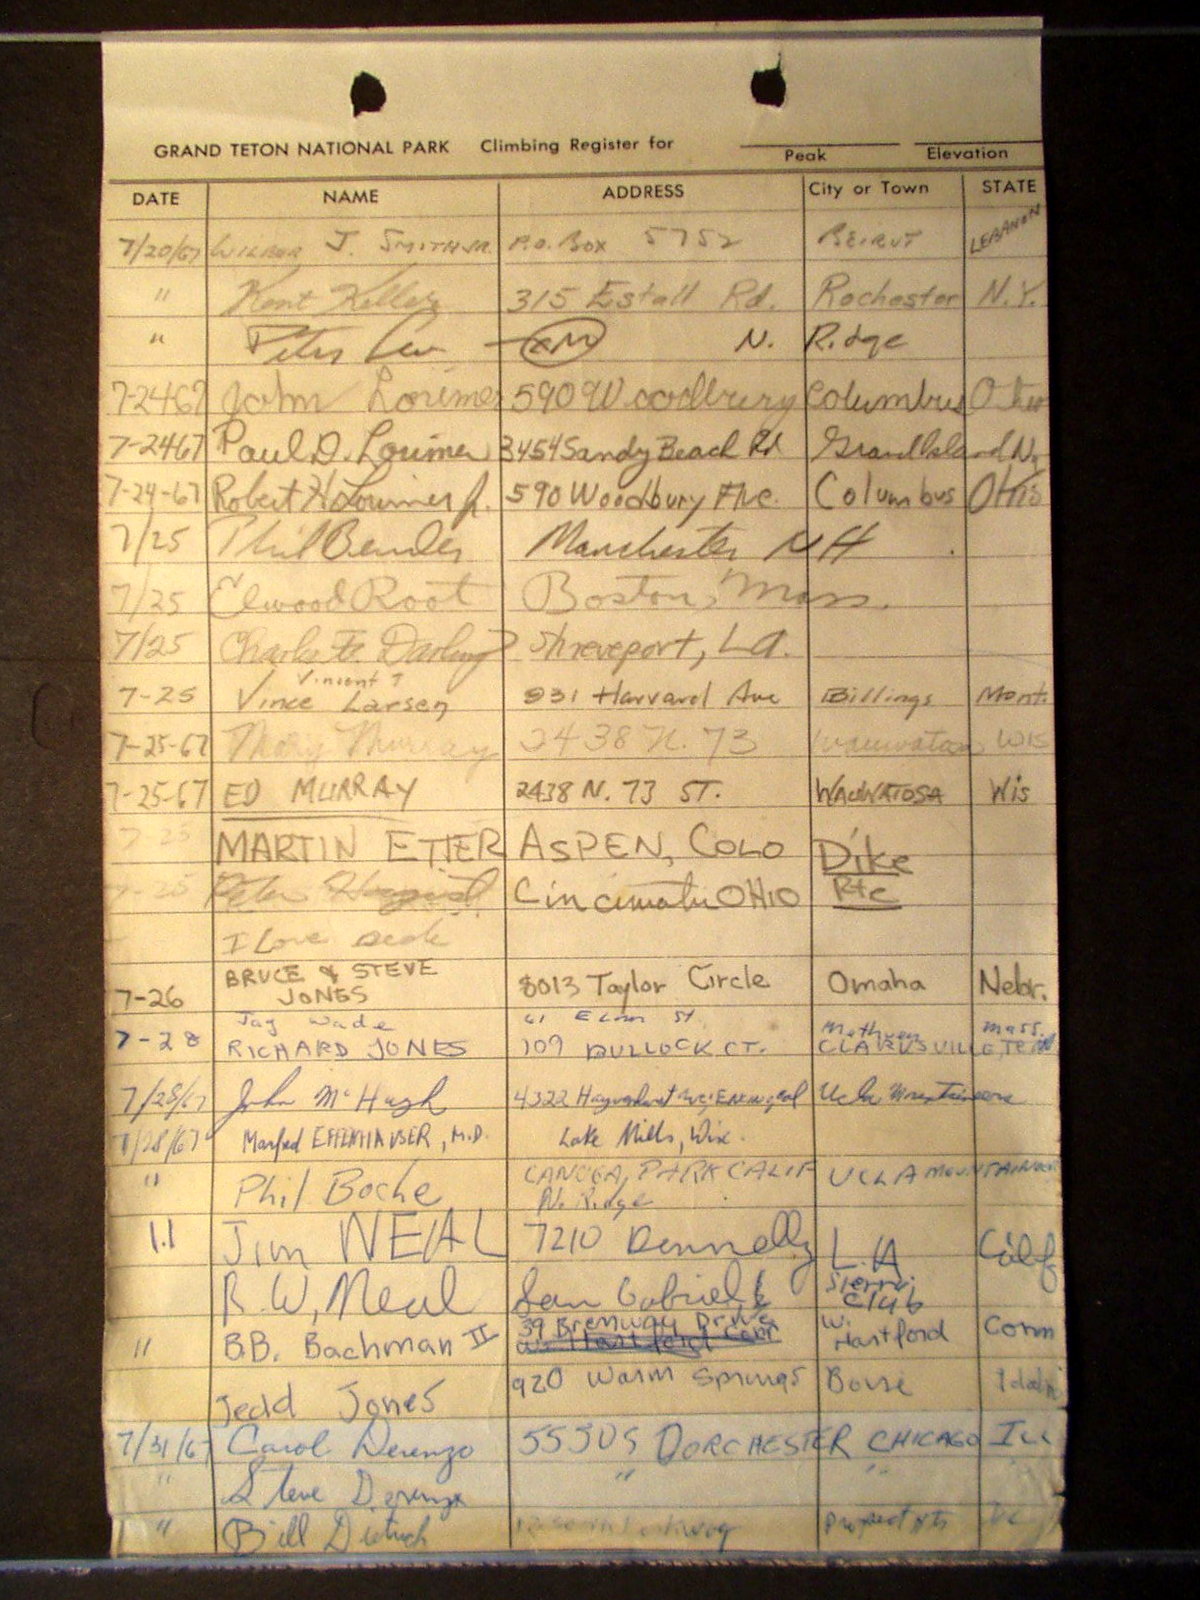 GRAND TETON NATIONAL PARK Climbing Register for
Peak Elevation
DATE NAME ADDRESS City or Town STATE
7/20/67 WILBUR J. SMITH JR. P.O. BOX 5752 BEIRUT LEBANON
" Kent Keller 315 Estall Rd. Rochester N.Y.
" Peter N. Ridge
7-24 67 John Lorimer 590 Woodbury Columbus Ohio
7-24 67 Paul D. Lorimer 3454 Sandy Beach Rd Grand Island N.Y
7-24-67 Robert H. Lorimer Jr. 590 Woodbury Ave. Columbus Ohio
7/25 Phil Bender Manchester NH
7/25 Elwood Root Boston, Mass.
7/25 Darling Shreveport, La.
Vincent ?
7-25 Vince Larsen 931 Harvard Ave Billings Mont.
7-25-67 Mary Murray 2438 N. 73 Wauwatosa Wis
7-25-67 ED MURRAY 2438 N. 73 ST. WAUWATOSA Wis
7-25 MARTIN ETTER ASPEN, COLO Dike
7-25 Peter Cincinnati OHIO Rte
I Love
BRUCE & STEVE
7-26 JONES 8013 Taylor Circle Omaha Nebr.
Jay Wade 61 Elm St Methuen Mass.
7-28 RICHARD JONES 109 BULLOCK CT. CLARKSVILLE TENN
7/28/67 John McHugh 4322 Ucla Mountaineers
7/28/67 Manfred EFFENHAUSER, M.D. Lake Mills, Wix.
" Phil Boche CANOGA PARK CALIF UCLA MOUNTAINEER
N. Ridge
11 Jim NEAL 7210 Donnelly L.A Calif
R.W. Neal San Gabriel Sierra
Club
" B.B. Bachman II 39 Bremway Drive W. Hartford Conn
W. Hartford Conn
Jedd Jones 920 Warm Springs Boise Idaho
7/31/67 Carol Derenzo 5530 S DORCHESTER CHICAGO ILL
" Steve Derenzo " " "
" Bill Dietrich Prospect Hts